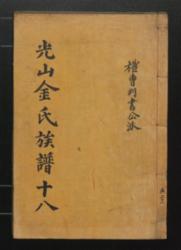 光山金氏族譜十八
權曹判書公派